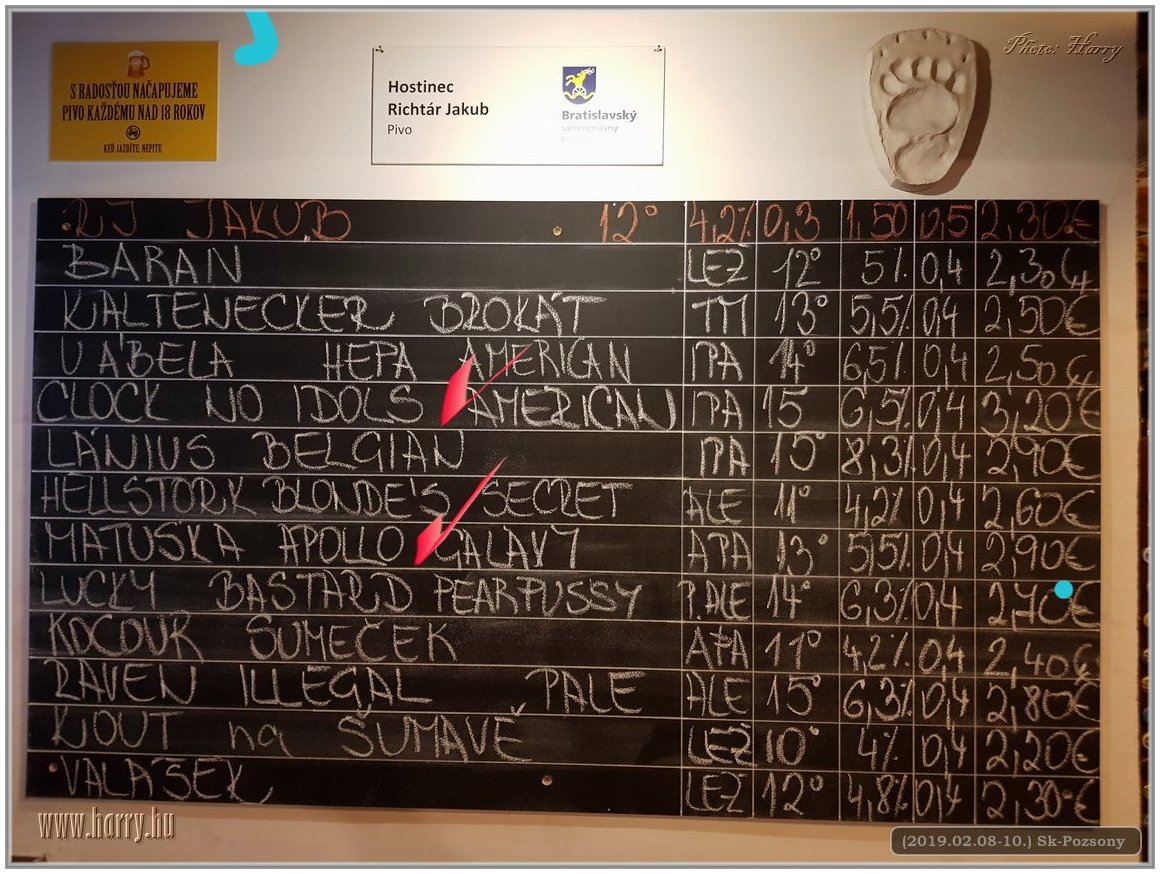 Photo: Harry
S RADOSŤOU NAČAPUJEME
PIVO KAŽDÉMU NAD 18 ROKOV
KEĎ JAZDÍTE, NEPITE
Hostinec
Richtár Jakub
Pivo
Bratislavský
samosprávny
RJ JAKUB 12° 4,2% 0,3 1,50 0,5 2,30€
BARAN LEŽ 12° 5% 0,4 2,30€
KALTENECKER BROKÁT TM 13° 5,5% 0,4 2,50€
U ÁBELA HEPA AMERICAN IPA 14° 6,5% 0,4 2,50€
CLOCK NO IDOLS AMERICAN IPA 15 6,5% 0,4 3,20€
LANIUS BELGIAN IPA 15° 8,3% 0,4 2,90€
HELLSTORK BLONDE'S SECRET ALE 11° 4,2% 0,4 2,60€
MATUŠKA APOLLO GALAXY APA 13° 5,5% 0,4 2,90€
LUCKY BASTARD PEARPUSSY P.ALE 14° 6,3% 0,4 2,70€
KOCOUR ŠUMEČEK APA 11° 4,2% 0,4 2,40€
RAVEN ILLEGAL PALE ALE 15° 6,3% 0,4 2,80€
KOUT na ŠUMAVĚ LEŽ 10° 4% 0,4 2,20€
VALÁŠEK LEŽ 12° 4,8% 0,4 2,30€
www.harry.hu
(2019.02.08-10.) Sk-Pozsony